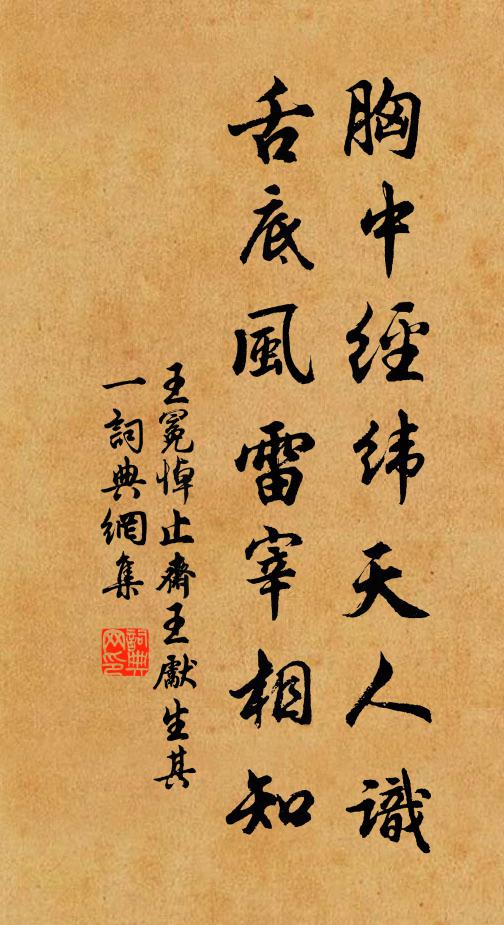 胸中經緯天人識
舌底風雷宰相知
王冕悼止齋王獻生其
一詞典網集
詞典
网印